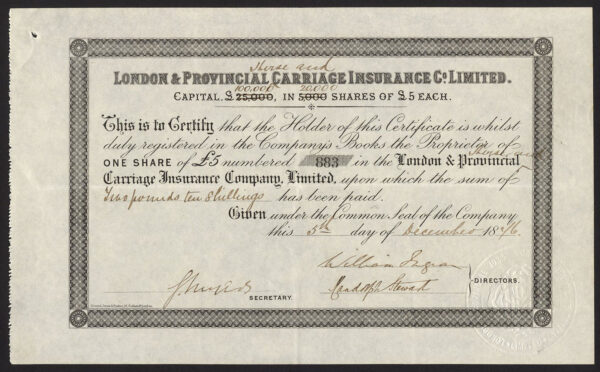 Horse and
LONDON & PROVINCIAL CARRIAGE INSURANCE Co. LIMITED.
100,000 20,000
CAPITAL £25,000, IN 5000 SHARES OF £5 EACH.
This is to Certify that the Holder of this Certificate is whilst
duly registered in the Company's Books the Proprietor of
ONE SHARE of £5 numbered 883 in the London & Provincial
Horse and
Carriage Insurance Company, Limited, upon which the sum of
Two pounds ten Shillings has been paid.
Given under the Common Seal of the Company
this 5th day of December 1876.
William
Randolph Stewart
DIRECTORS.
SECRETARY.